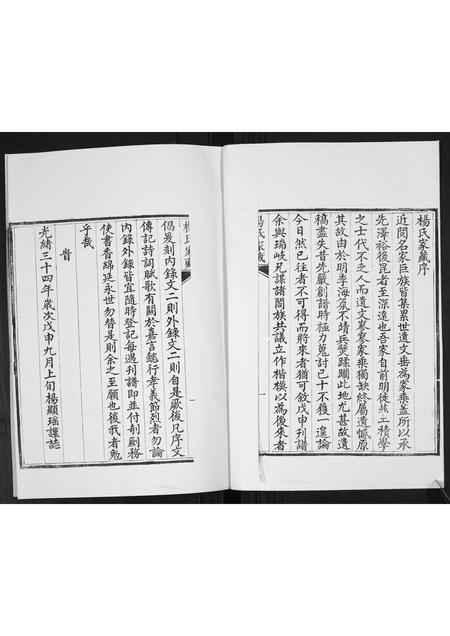 楊氏家藏序
近閱名家巨族皆集累世遺文垂為家乘蓋所以承
先澤裕後昆者至深遠也吾家自前明徒 工積學
之士代不乏人而遺文寥寥家乘獨缺終屬遺憾原
其故由於明季海氛不靖兵燹蹂躪此地尤甚故遺
稿盡失昔先嚴創譜時極力蒐討已十不獲一遑論
今日然已往者不可得而將來者猶可敘戊申刊譜
余與瑞岐兄謀諸閤族共議立作楷模以為後來者
楊氏家藏
一
楊氏家藏
倡爰刻內錄文二則外錄文二則自是厥後凡序文
傳記詩詞賦歌有關於嘉言懿行孝義節烈者勿論
內錄外錄皆宜隨時登記每遇刊譜即並付剞劂務
使書香綿延永世勿替是則余之至願也後我者勉
乎哉
旹
光緒三十四年歲次戊申九月上旬楊顯瑤謹誌